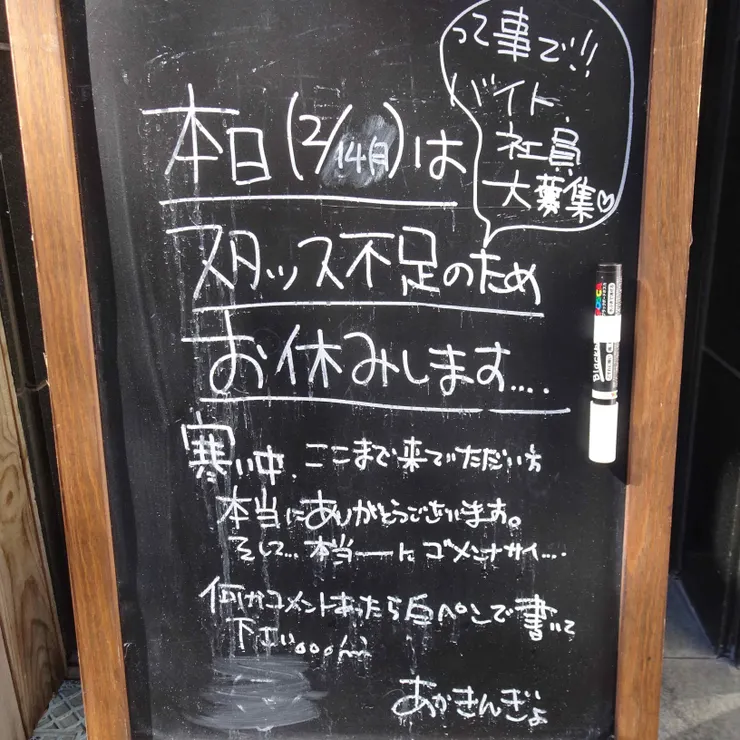 って事で!!
バイト、
社員
大募集♡
本日(2/14月)は
スタッフ不足のため
お休みします....
寒い中、ここまで来ていただい方
本当にありがとうございます。
そして...本当ーーにゴメンナサイ....
何かコメントあったら白ペンで書いて
下さい。。。m
あかきんぎょ
POSCA